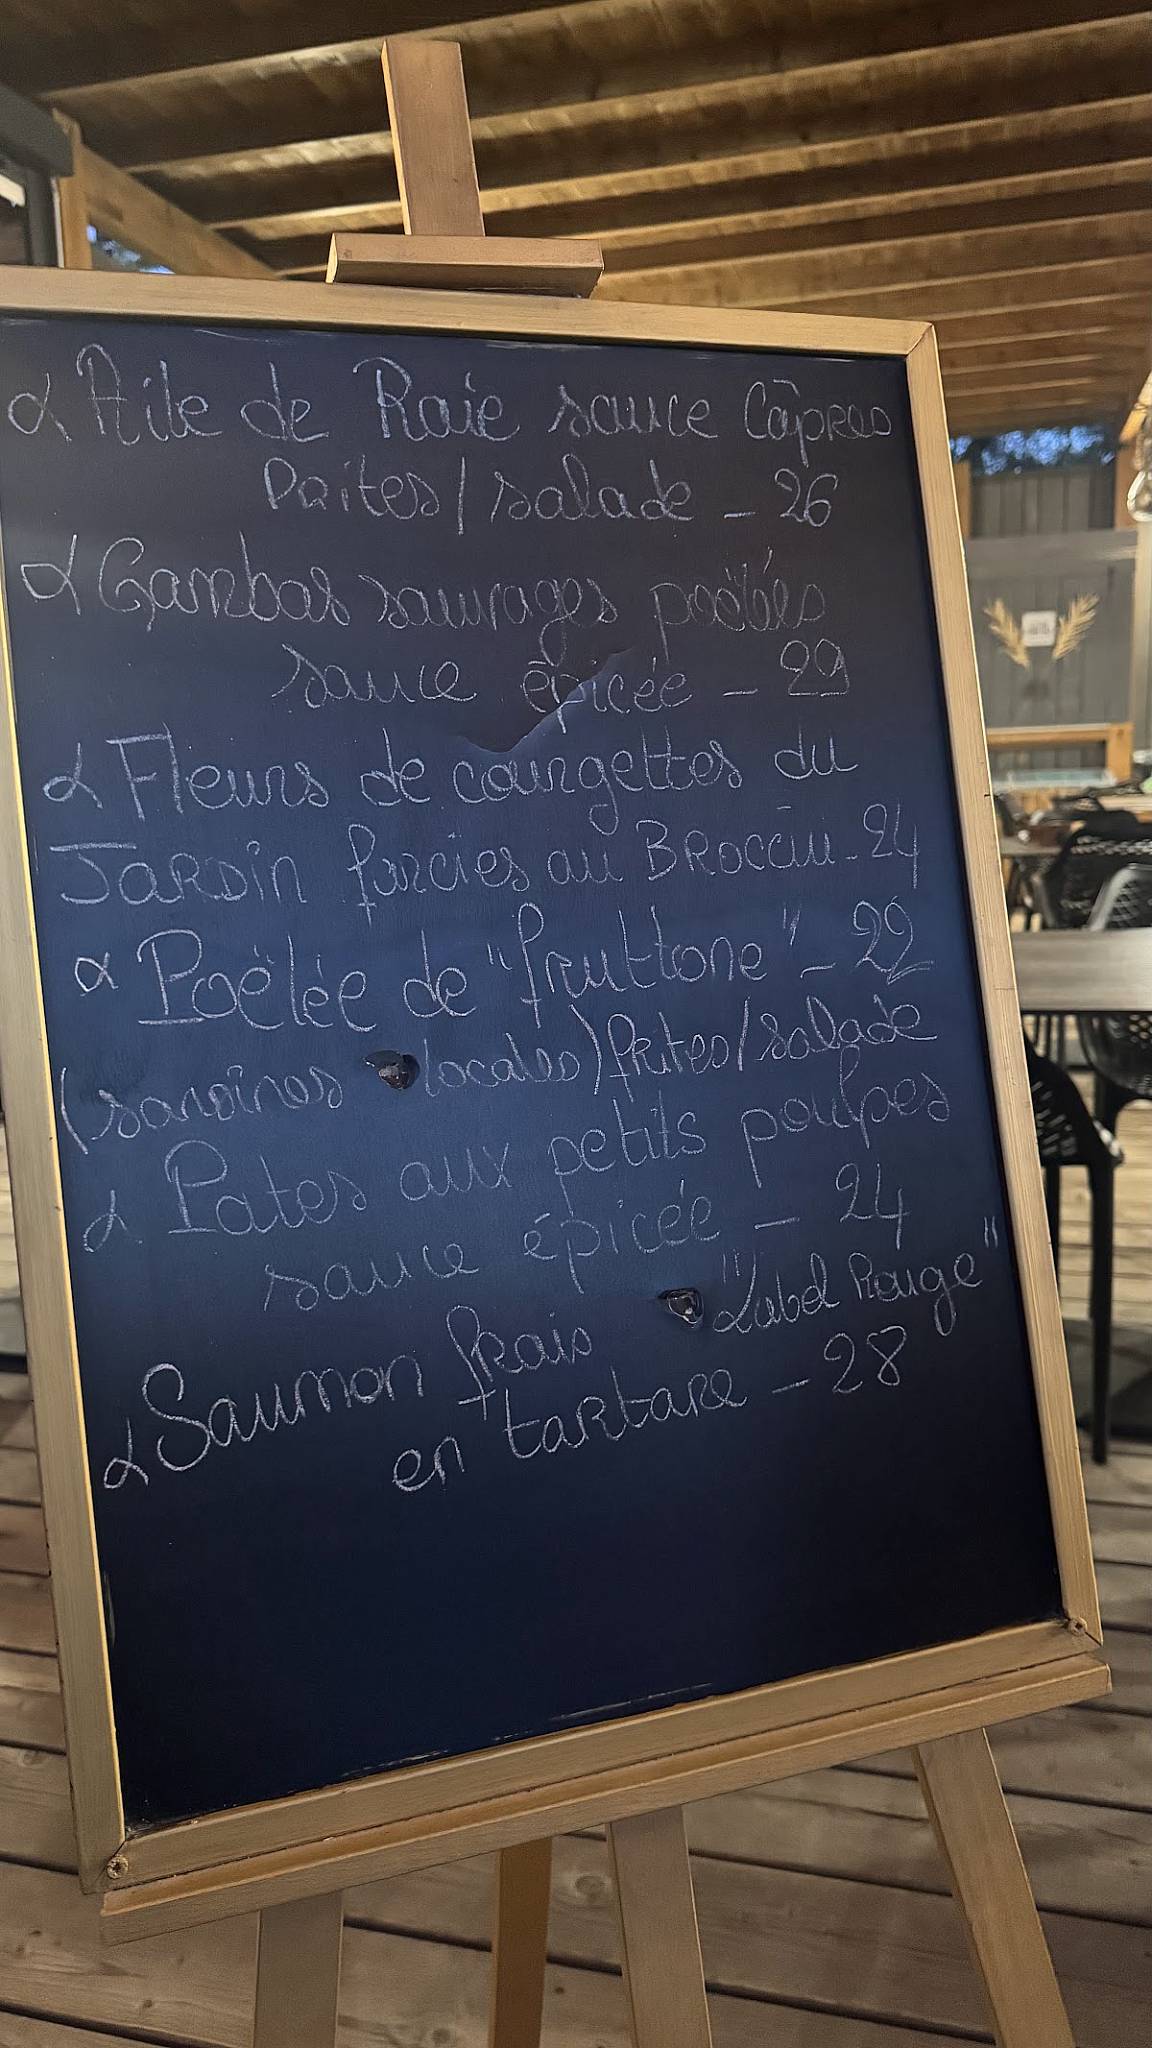 Aile de Raie sauce Câpres
Frites/salade - 26
Gambas sauvages poêlées
sauce épicée - 29
Fleurs de courgettes du
Jardin farcies au Brocciu - 24
Poëlée de "fruttone" - 22
(sardines locales) frites/salade
Pates aux petits poulpes
sauce épicée - 24
Saumon frais "Label Rouge"
en tartare - 28